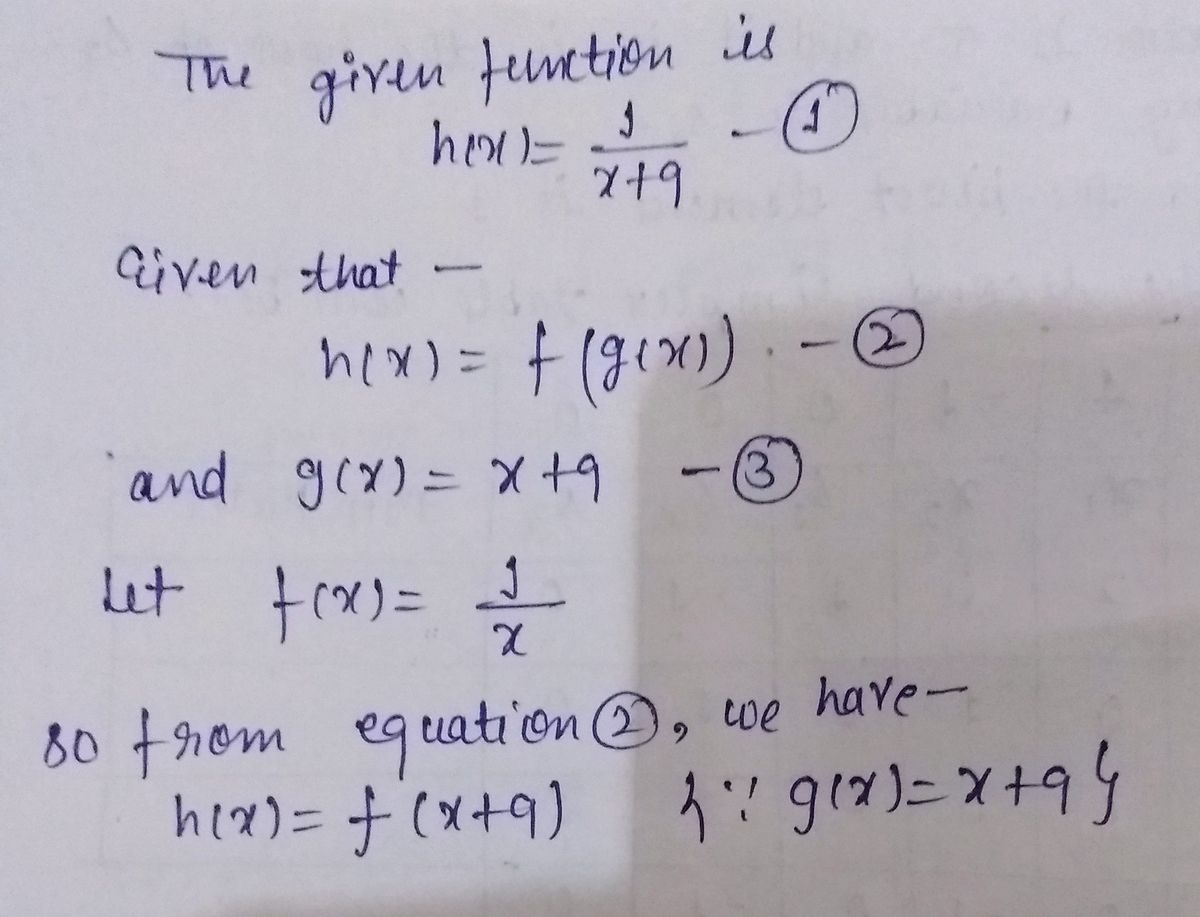 The given function is
h(x) = 1/(x+9) - ①
Given that —
h(x) = f (g(x)) . - ②
and g(x) = x + 9 - ③
Let f(x) = 1/x
so from equation ②, we have —
h(x) = f (x+9) {∵ g(x) = x + 9}